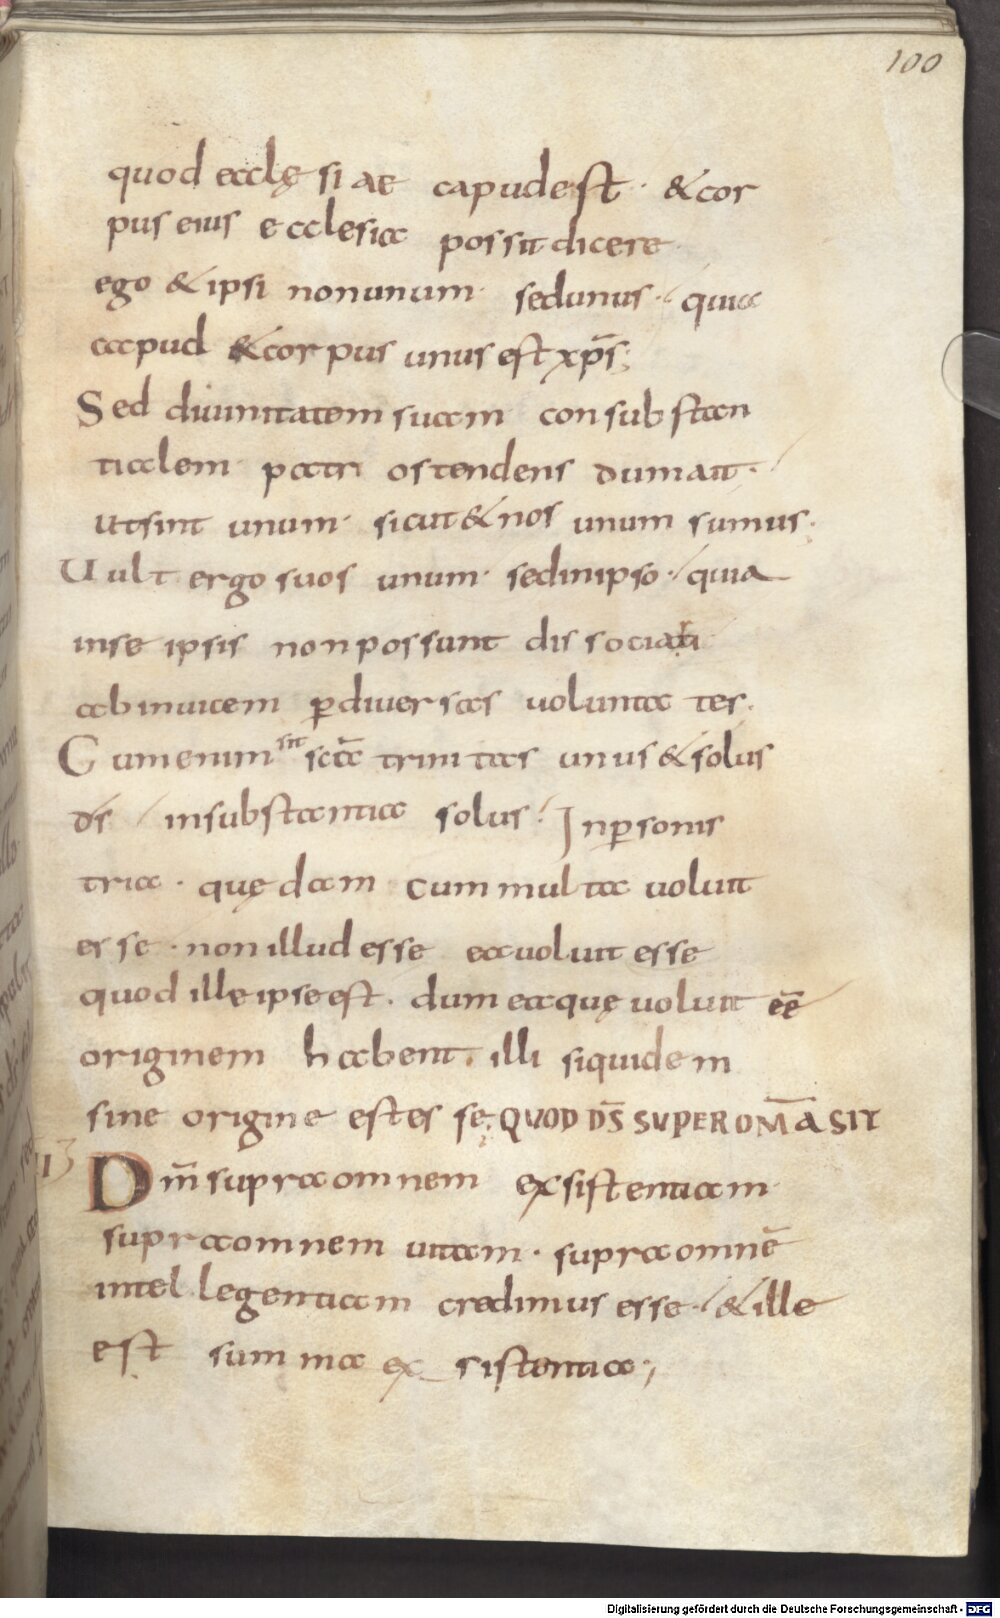 100
quod ecclęsiae capud est · & cor
pus eius ecclesia possit dicere
ego & ipsi non unum · sed unus · quia
capud & corpus unus est xp̄s;
Sed diuinitatem suam consubstan
tialem patri ostendens dum ait ·
ut sint unum · sicut & nos unum sumus ·
Uult ergo suos unum · sed in ipso · quia
in se ipsis non possunt dissociati
ab inuicem ꝑ diuersas uoluntates.
Cum enim sit sc̄a trinitas unus & solus
d̄s in substantia solus · In ꝑsonis
tria · quędam cum multa uoluit
esse · non illud esse ea uoluit esse
quod ille ipse est · dum ea quę uoluit eē
originem habent · illi siquidem
sine origine est esse; QUOD D̄S SUPER OM̄A SIT
13
Dm̄ supra omnem exsistentiam
supra omnem uitam · supra omnē
intellegentiam credimus esse · & ille
est summa exsistentia;
Digitalisierung gefördert durch die Deutsche Forschungsgemeinschaft - DFG